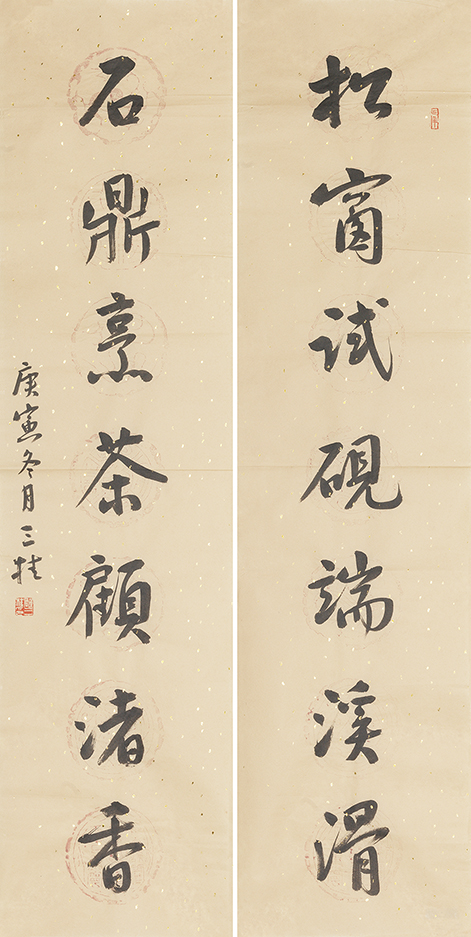 松窗試硯端溪滑
石鼎烹茶顧渚香
庚寅冬月三桂